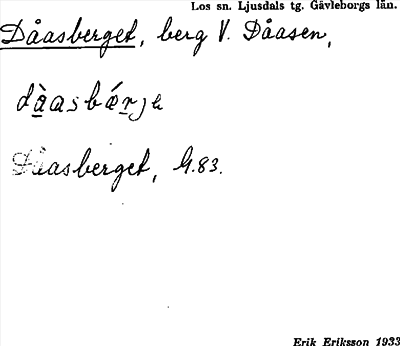 Los sn. Ljusdals tg. Gävleborgs län.
Dåasberget, berg V. Dåasen,
dà̲asbǽr̲je
Dåasberget, G.83.
Erik Eriksson 1933